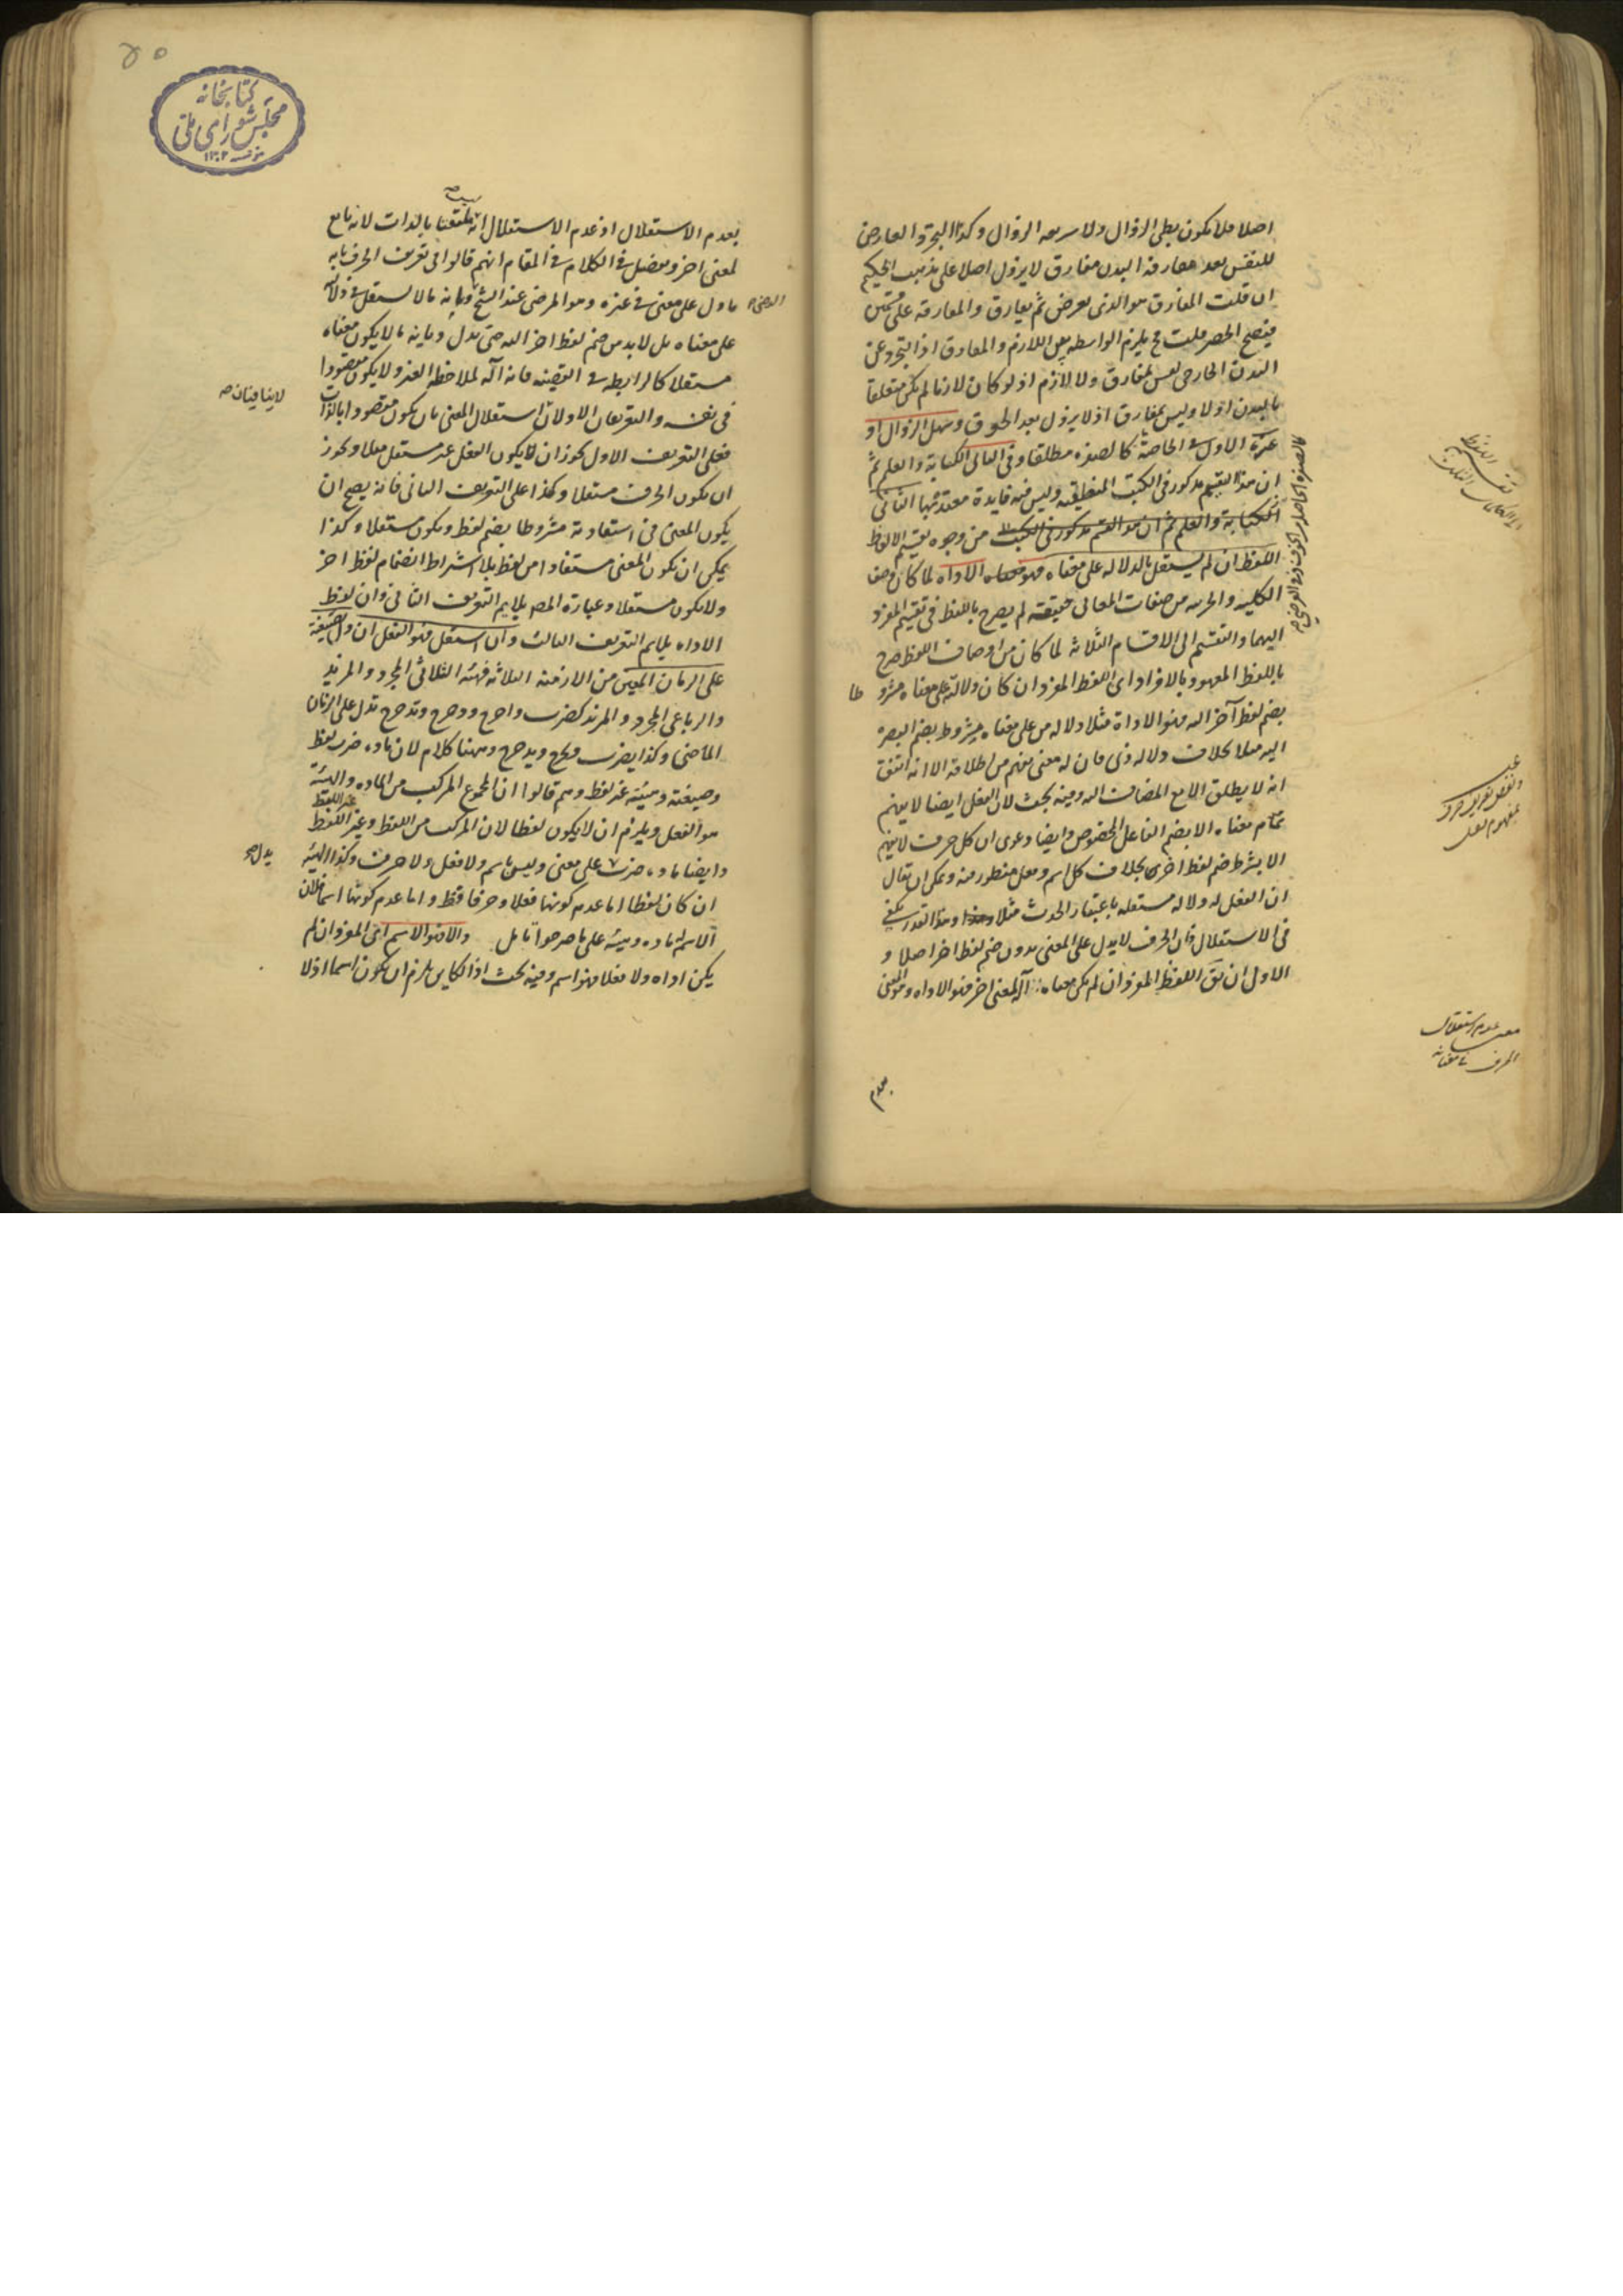 اصلا فلا يكون بطى الزوال ولا سريعه الزوال وكذا التجرد العارض
للنفس بعد مفارقة البدن مفارق لا يزول اصلا على مذهب الحكيم
ان قلت المفارق هو الذى يعرض ثم يفارق والمفارقة على قسمين
فيصح الحصر قلت ح يلزم الواسطه بين اللازم والمفارق اذ التجرد عن
البدن الخارجى ليس بمفارق ولا لازم اذ لو كان لازما لم يكن متعلقا
بالبدن اولا وليس بمفارق اذ لا يزول بعد الحوق وسهل الزوال او
عسره الاول فى الخاصة كالصفره مطلقا وفى الثانى الكتابة والعلم ثم
ان هذا التقسيم مذكور فى الكتب المنطقيه وليس فيه فايدة معتد بها الثانى
الكتابة والعلم ثم ان هذا القسم مذكور فى الكتب من وجوه تقسيم الالفاظ
اللفظ ان لم يستقل بالدلاله على معناه فهو الاداه لما كان وصف
الكليه والجزئيه من صفات المعانى حقيقته لم يصرح باللفظ فى تقسيم المفرد
اليهما والتقسيم الى الاقسام الثلاثة لما كان من اوصاف اللفظ صرح
باللفظ المعهود بالافراد اى اللفظ المفرد ان كان دلالته على معناه مشرو طا
بضم لفظ آخر اليه فهو الاداة مثلا دلاله من على معناه مشروط بضم البصرة
اليه مثلا بخلاف دلاله ذى فان له معنى يفهم من اطلاقه الا انه اتفق
انه لا يطلق الا مع المضاف اليه وفيه بحث لان الفعل ايضا لا يفهم
تمام معناه الا بضم الفاعل المخصوص وايضا دعوى ان كل حرف لا يفهم
الا بشرط ضم لفظ اخرى بخلاف كل اسم وفعل منظور فيه ويمكن ان يقال
ان الفعل له دلاله مستقله باعتبار الحدث مثلا وهذا القدر يكفى
فى الاستقلال وان الحرف لا يدل على المعنى بدون ضم لفظ اخر اصلا و
الاولى ان يق اللفظ المفرد ان لم يكن معناه آلة لمعنى اخر فهو الاداه وهو المعنى
بعدم
تقسيم اللفظ
عدم استقلال
معنى
الحرف فى معناه
كتابخانه
مجلس شوراى ملى
١٣٠٢
بعدم الاستقلال اذ عدم الاستقلال انه ليس ملتفتا بالذات لانه تابع
لمعنى اخر وتفصيل فى الكلام فى المقام انهم قالوا فى تعريف الحرف بانه
ما دل على معنى فى غيره وهو المرضى عند الشيخ وبانه ما لا يستقل فى دلالته
على معناه بل لا بد من ضم لفظ اخر اليه حتى يدل وبانه ما لا يكون معناه
مستقلا كالرابطه فى القضيه فانه آله لملاحظه الغير ولا يكون مقصودا
فى نفسه والتعريفان الاولان استقلال المعنى بان يكون مقصودا بالذات
لا ينافيان
فعلى التعريف الاول يجوز ان لا يكون الفعل غير مستقل مثلا ويجوز
ان يكون الحرف مستقلا وكذا على التعريف الثانى فانه يصح ان
يكون المعنى فى استفادته مشروطا بضم لفظ ويكون مستقلا وكذا
يمكن ان يكون المعنى مستفادا من لفظ بلا اشتراط انضمام لفظ اخر
ولا يكون مستقلا وعبارة المص يلايم التعريف الثانى وان لفظ
الاداه يلايم التعريف الثالث وان استقل فهو الفعل ان دل بصيغته
على الزمان المعين من الازمنه الثلاثة فهيئه الثلاثى المجرد والمزيد
والرباعى المجرد والمزيد كضرب واخرج ودحرج وتدحرج تدل على الزمان
الماضى وكذا يضرب ويخرج ويدحرج وههنا كلام لان ماده ضرب لفظ
وصيغته وهيئته غير لفظ وهم قالوا ان المجموع المركب من الماده والهيئة
هو الفعل ويلزم ان لا يكون لفظا لان المركب من اللفظ وغير اللفظ غير اللفظ
وايضا ماده ضرب يدل على معنى وليس باسم ولا فعل ولا حرف وكذا الهيئه
ان كان لفظا اما عدم كونها فعلا وحرفا فقط واما عدم كونها اسما فلان
الاسم له ماده وهيئه على ما صرحوا تامل والا فهو الاسم اى المفرد ان لم
يكن اداه ولا فعلا فهو اسم وفيه بحث اذ الكاين يلزم ان يكون اسما اذ لا